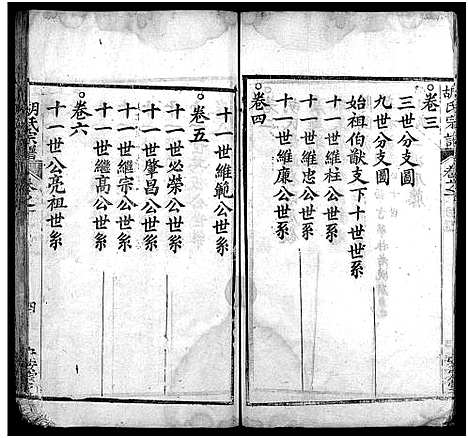 胡氏宗譜
卷之一
卷三
三世分支圖
九世分支圖
始祖伯猷支下十世世系
十一世維柱公世系
十一世維忠公世系
十一世維康公世系
卷四
十一世維範公世系
卷五
十一世必榮公世系
十一世肇昌公世系
十一世繼宗公世系
十一世繼高公世系
卷六
十一世公亮祖世系
胡氏宗譜
卷之一
四